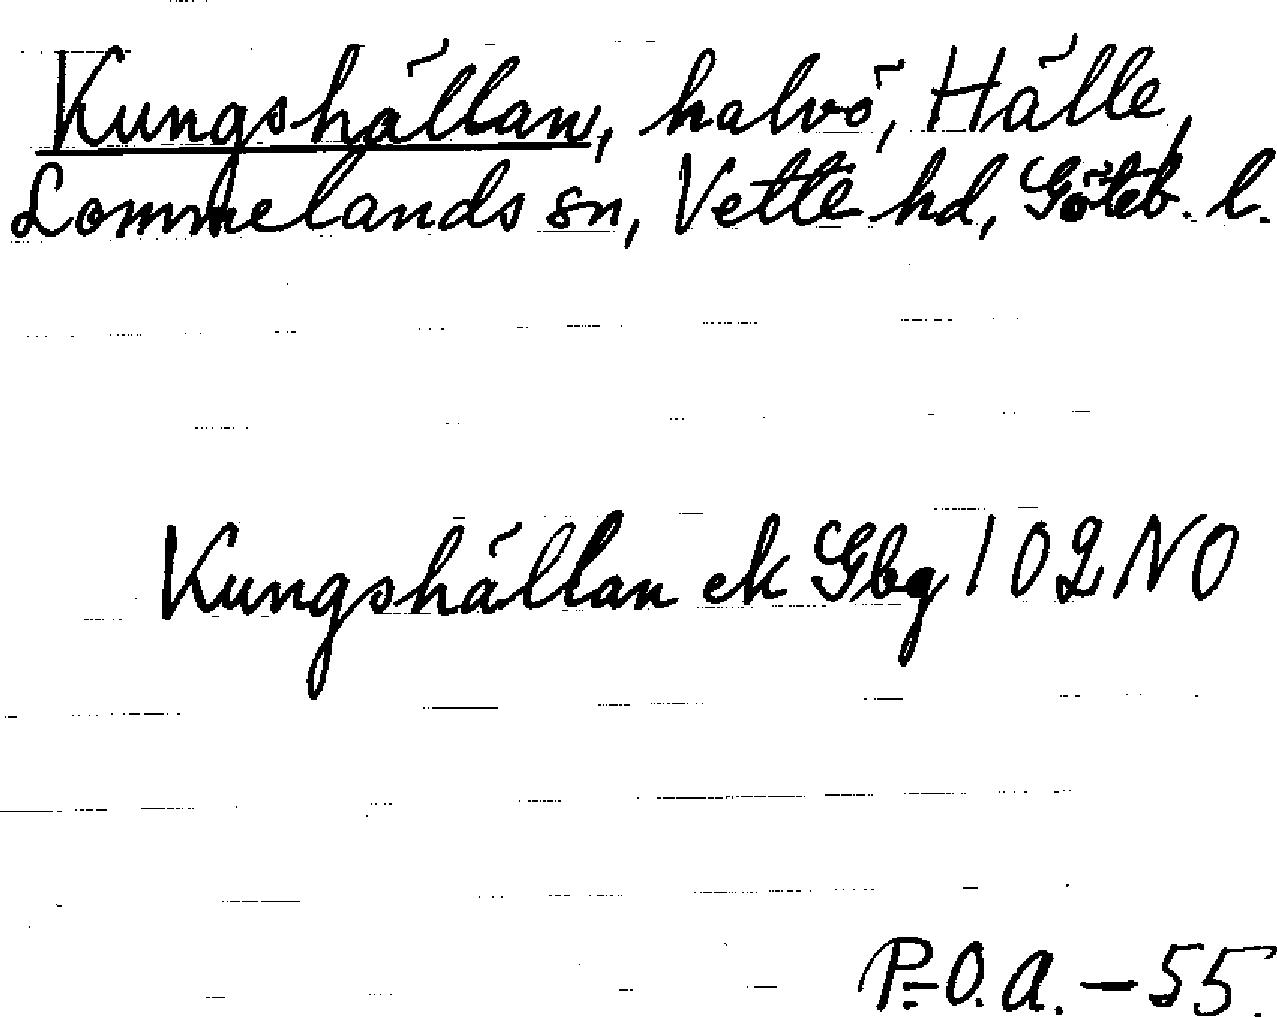 Kungshällan, halvö, Hälle,
Lommelands sn, Vette hd, Göteb. l.
Kungshällan ek Gbg 102 NO
P.-O. A. – 55.